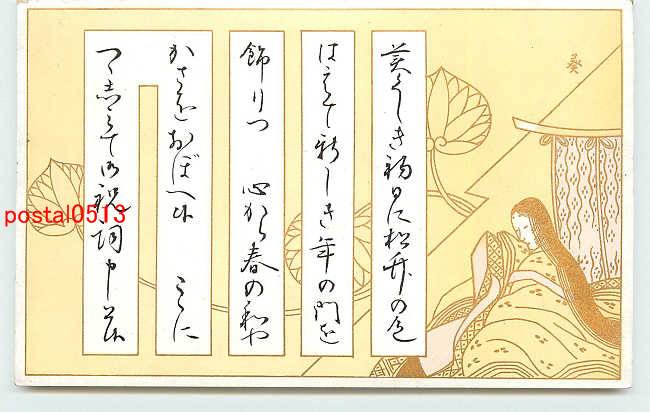 葵
美くしき初日に松竹の色
はえて新しき年の門を
飾りつ 心から春の和や
かさをおぼへ候 ここに
つゝしみて御祝詞申上候
postal0513